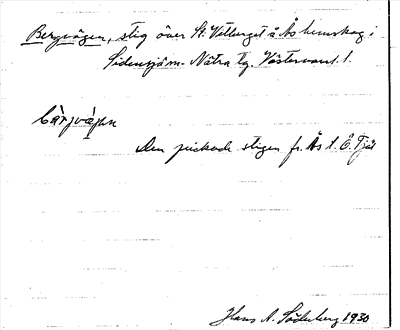 Bergvägen, stig över St. Vitberget å Ås hemskog i
Sidensjö sn. Nätra tg. Västernorrl. l.
bàrjvä́jən
Den prickade stigen fr. Ås t. Ö. Fjäl
Hans A. Söderberg 1930